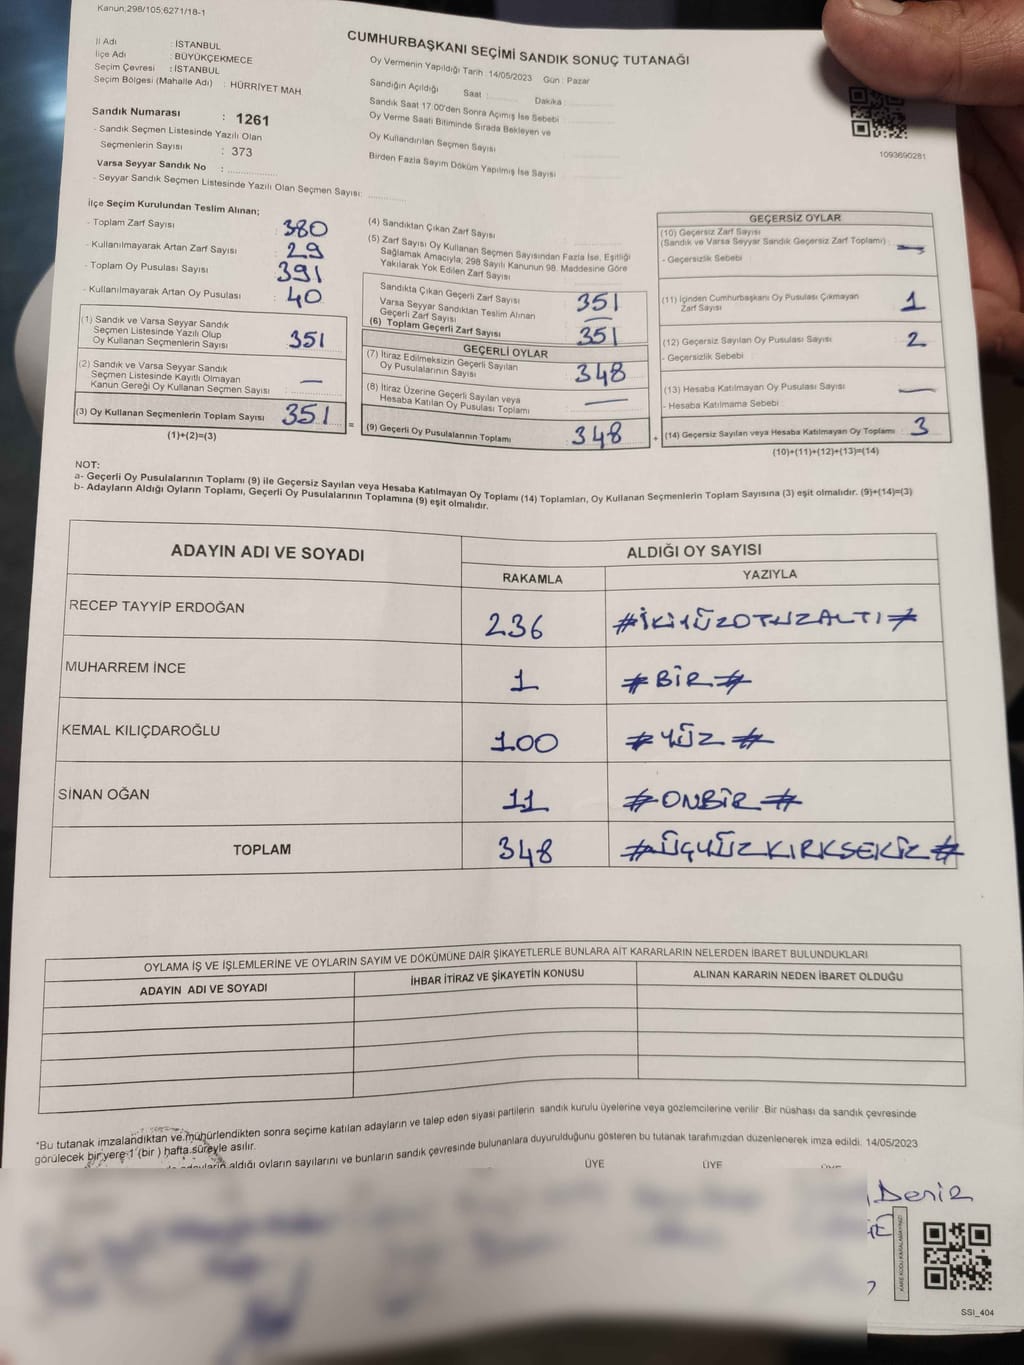 Kanun;298/105;6271/18-1
CUMHURBAŞKANI SEÇİMİ SANDIK SONUÇ TUTANAĞI
İl Adı : İSTANBUL
İlçe Adı : BÜYÜKÇEKMECE
Seçim Çevresi : İSTANBUL
Seçim Bölgesi (Mahalle Adı) : HÜRRİYET MAH
Oy Vermenin Yapıldığı Tarih : 14/05/2023 Gün : Pazar
Sandığın Açıldığı Saat : Dakika :
Sandık Saat 17:00'den Sonra Açımış İse Sebebi
Oy Verme Saati Bitiminde Sırada Bekleyen ve
Oy Kullandırılan Seçmen Sayısı
Birden Fazla Sayım Döküm Yapılmış İse Sayısı
1093690281
Sandık Numarası : 1261
- Sandık Seçmen Listesinde Yazılı Olan
Seçmenlerin Sayısı : 373
Varsa Seyyar Sandık No :
- Seyyar Sandık Seçmen Listesinde Yazılı Olan Seçmen Sayısı:
İlçe Seçim Kurulundan Teslim Alınan;
- Toplam Zarf Sayısı 380
- Kullanılmayarak Artan Zarf Sayısı 29
- Toplam Oy Pusulası Sayısı 391
- Kullanılmayarak Artan Oy Pusulası 40
(1) Sandık ve Varsa Seyyar Sandık
Seçmen Listesinde Yazılı Olup
Oy Kullanan Seçmenlerin Sayısı 351
(2) Sandık ve Varsa Seyyar Sandık
Seçmen Listesinde Kayıtlı Olmayan
Kanun Gereği Oy Kullanan Seçmen Sayısı —
(3) Oy Kullanan Seçmenlerin Toplam Sayısı 351 =
(1)+(2)=(3)
(4) Sandıktan Çıkan Zarf Sayısı
(5) Zarf Sayısı Oy Kullanan Seçmen Sayısından Fazla İse, Eşitliği
Sağlamak Amacıyla, 298 Sayılı Kanunun 98. Maddesine Göre
Yakılarak Yok Edilen Zarf Sayısı
Sandıkta Çıkan Geçerli Zarf Sayısı 351
Varsa Seyyar Sandıktan Teslim Alınan
Geçerli Zarf Sayısı —
(6) Toplam Geçerli Zarf Sayısı 351
GEÇERLİ OYLAR
(7) İtiraz Edilmeksizin Geçerli Sayılan
Oy Pusulalarının Sayısı 348
(8) İtiraz Üzerine Geçerli Sayılan veya
Hesaba Katılan Oy Pusulası Toplamı —
(9) Geçerli Oy Pusulalarının Toplamı 348 +
GEÇERSİZ OYLAR
(10) Geçersiz Zarf Sayısı
(Sandık ve Varsa Seyyar Sandık Geçersiz Zarf Toplamı) : —
- Geçersizlik Sebebi
(11) İçinden Cumhurbaşkanı Oy Pusulası Çıkmayan
Zarf Sayısı 1
(12) Geçersiz Sayılan Oy Pusulası Sayısı 2
- Geçersizlik Sebebi
(13) Hesaba Katılmayan Oy Pusulası Sayısı —
- Hesaba Katılmama Sebebi
(14) Geçersiz Sayılan veya Hesaba Katılmayan Oy Toplamı 3
(10)+(11)+(12)+(13)=(14)
NOT:
a- Geçerli Oy Pusulalarının Toplamı (9) ile Geçersiz Sayılan veya Hesaba Katılmayan Oy Toplamı (14) Toplamları, Oy Kullanan Seçmenlerin Toplam Sayısına (3) eşit olmalıdır. (9)+(14)=(3)
b- Adayların Aldığı Oyların Toplamı, Geçerli Oy Pusulalarının Toplamına (9) eşit olmalıdır.
ADAYIN ADI VE SOYADI ALDIĞI OY SAYISI
RAKAMLA YAZIYLA
RECEP TAYYİP ERDOĞAN 236 #İKİYÜZOTUZALTI#
MUHARREM İNCE 1 #BİR#
KEMAL KILIÇDAROĞLU 100 #YÜZ#
SİNAN OĞAN 11 #ONBİR#
TOPLAM 348 #ÜÇYÜZKIRKSEKİZ#
OYLAMA İŞ VE İŞLEMLERİNE VE OYLARIN SAYIM VE DÖKÜMÜNE DAİR ŞİKAYETLERLE BUNLARA AİT KARARLARIN NELERDEN İBARET BULUNDUKLARI
ADAYIN ADI VE SOYADI İHBAR İTİRAZ VE ŞİKAYETİN KONUSU ALINAN KARARIN NEDEN İBARET OLDUĞU
*Bu tutanak imzalandıktan ve mühürlendikten sonra seçime katılan adayların ve talep eden siyasi partilerin sandık kurulu üyelerine veya gözlemcilerine verilir. Bir nüshası da sandık çevresinde
görülecek bir yere 1 (bir) hafta süreyle asılır.
aldığı oyların sayılarını ve bunların sandık çevresinde bulunanlara duyurulduğunu gösteren bu tutanak tarafımızdan düzenlenerek imza edildi. 14/05/2023
ÜYE ÜYE
Deniz
KARE KODU KARALAMAYINIZ!
SSI_404